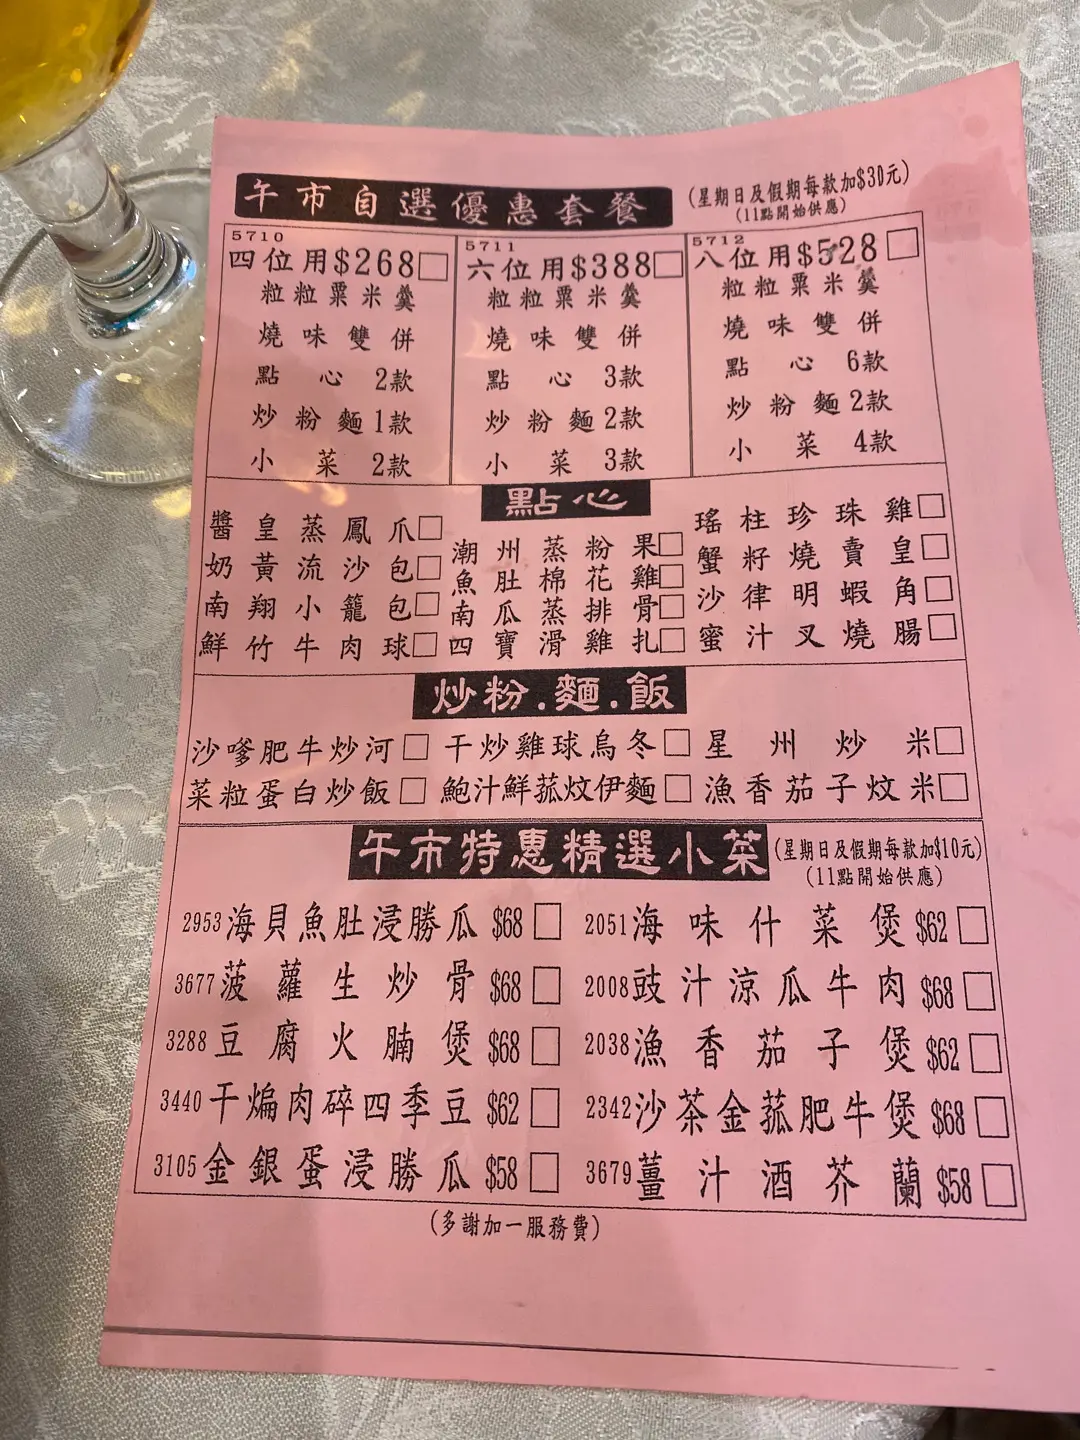 午市自選優惠套餐 (星期日及假期每款加$30元)
(11點開始供應)
5710
四位用$268□
粒粒粟米羹
燒味雙併
點心2款
炒粉麵1款
小菜2款
5711
六位用$388□
粒粒粟米羹
燒味雙併
點心3款
炒粉麵2款
小菜3款
5712
八位用$528□
粒粒粟米羹
燒味雙併
點心6款
炒粉麵2款
小菜4款
點心
醬皇蒸鳳爪□
奶黃流沙包□
南翔小籠包□
鮮竹牛肉球□
潮州蒸粉果□
魚肚棉花雞□
南瓜蒸排骨□
四寶滑雞扎□
瑤柱珍珠雞□
蟹籽燒賣皇□
沙律明蝦角□
蜜汁叉燒腸□
炒粉.麵.飯
沙嗲肥牛炒河□ 干炒雞球烏冬□ 星州炒米□
菜粒蛋白炒飯□ 鮑汁鮮菰炆伊麵□ 漁香茄子炆米□
午市特惠精選小菜 (星期日及假期每款加$10元)
(11點開始供應)
2953海貝魚肚浸勝瓜 $68 □ 2051海味什菜煲 $62 □
3677菠蘿生炒骨 $68 □ 2008豉汁涼瓜牛肉 $68 □
3288豆腐火腩煲 $68 □ 2038漁香茄子煲 $62 □
3440干煸肉碎四季豆 $62 □ 2342沙茶金菰肥牛煲 $68 □
3105金銀蛋浸勝瓜 $58 □ 3679薑汁酒芥蘭 $58 □
(多謝加一服務費)